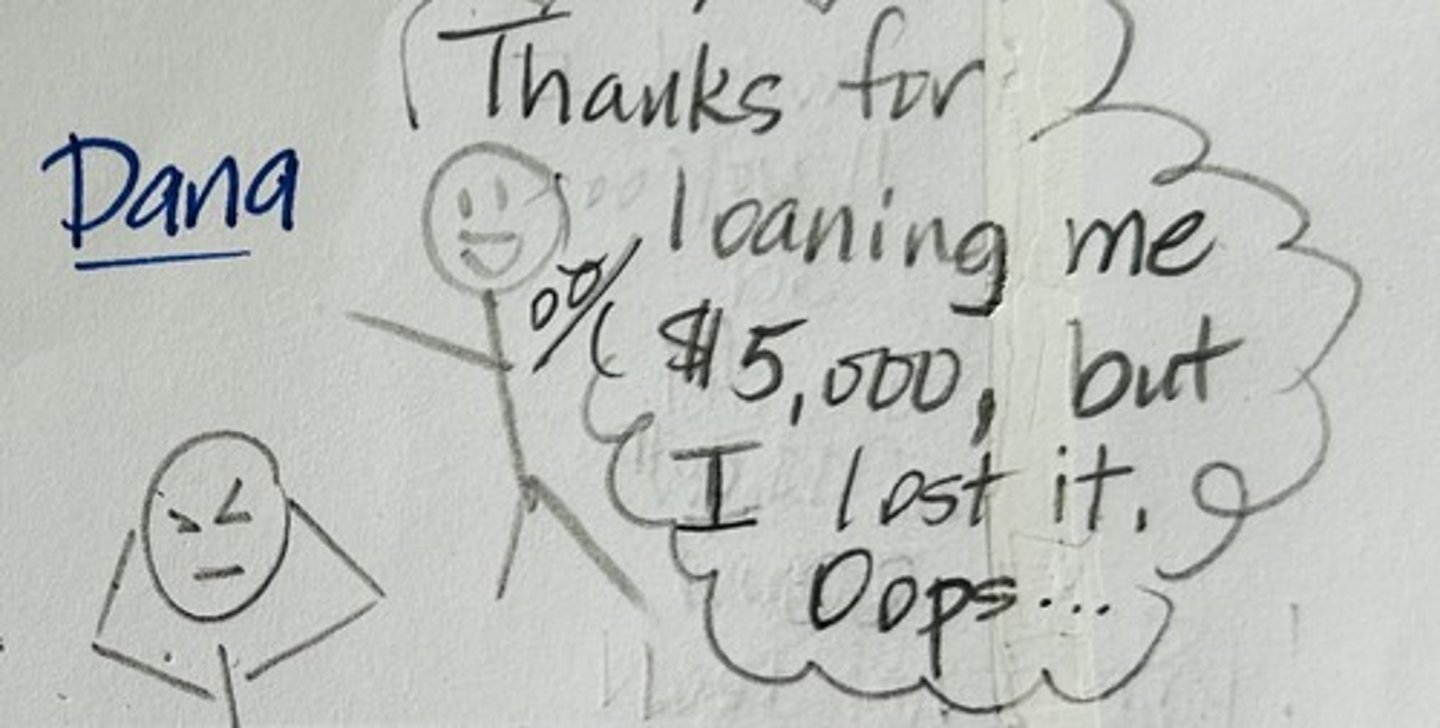 Thanks for
Dana
loaning me
$5,000, but
I lost it.
Oops...